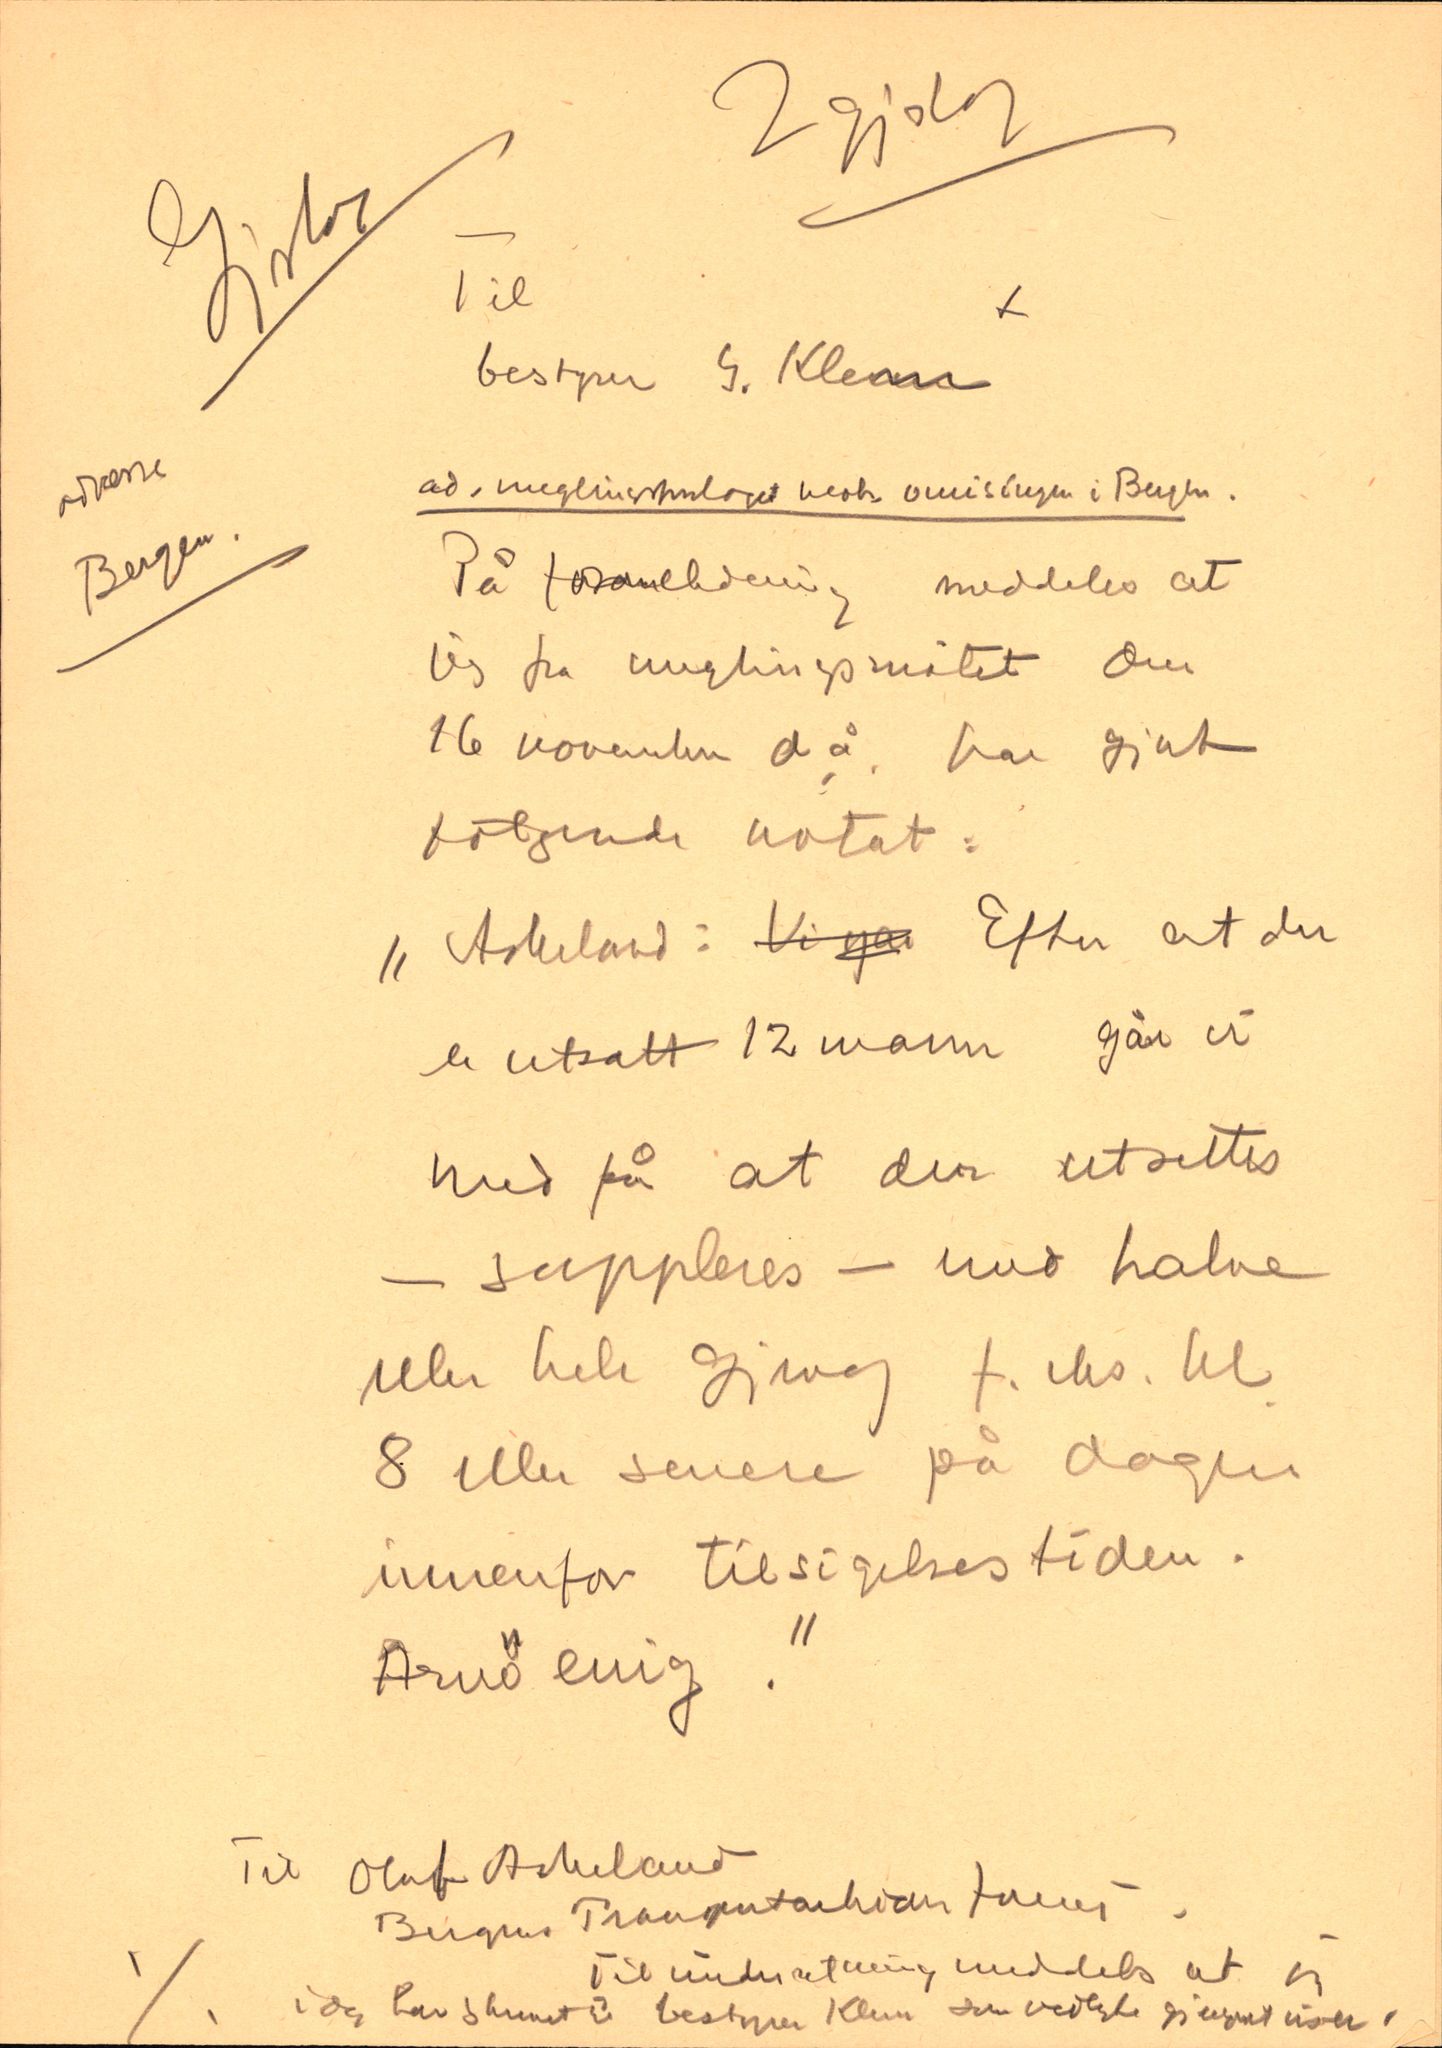 2 gjslag
Gjslag
Til
bestyrer G. Klemm
adresse
Bergen.
ad. meglingsforslaget vedr. ansisingen i Bergen.
På foranledning meddeles at
jeg fra meglingsmötet den
16 november d å. har gjort
fölgende notat:
" Askeland: Vi gå Efter at der
er utsatt 12 mann går vi
med på at der utsettes
— suppleres — med halve
eller hele gjeng f. eks. kl.
8 eller senere på dagen
innenfor tilsigelsestiden.
Arnö enig."
Til Olaf Askeland
Bergens Transportarbeider foren.
Til underretning meddeles at jeg
idag har skrevet til bestyrer Klem som vedlagte gjenpart viser.